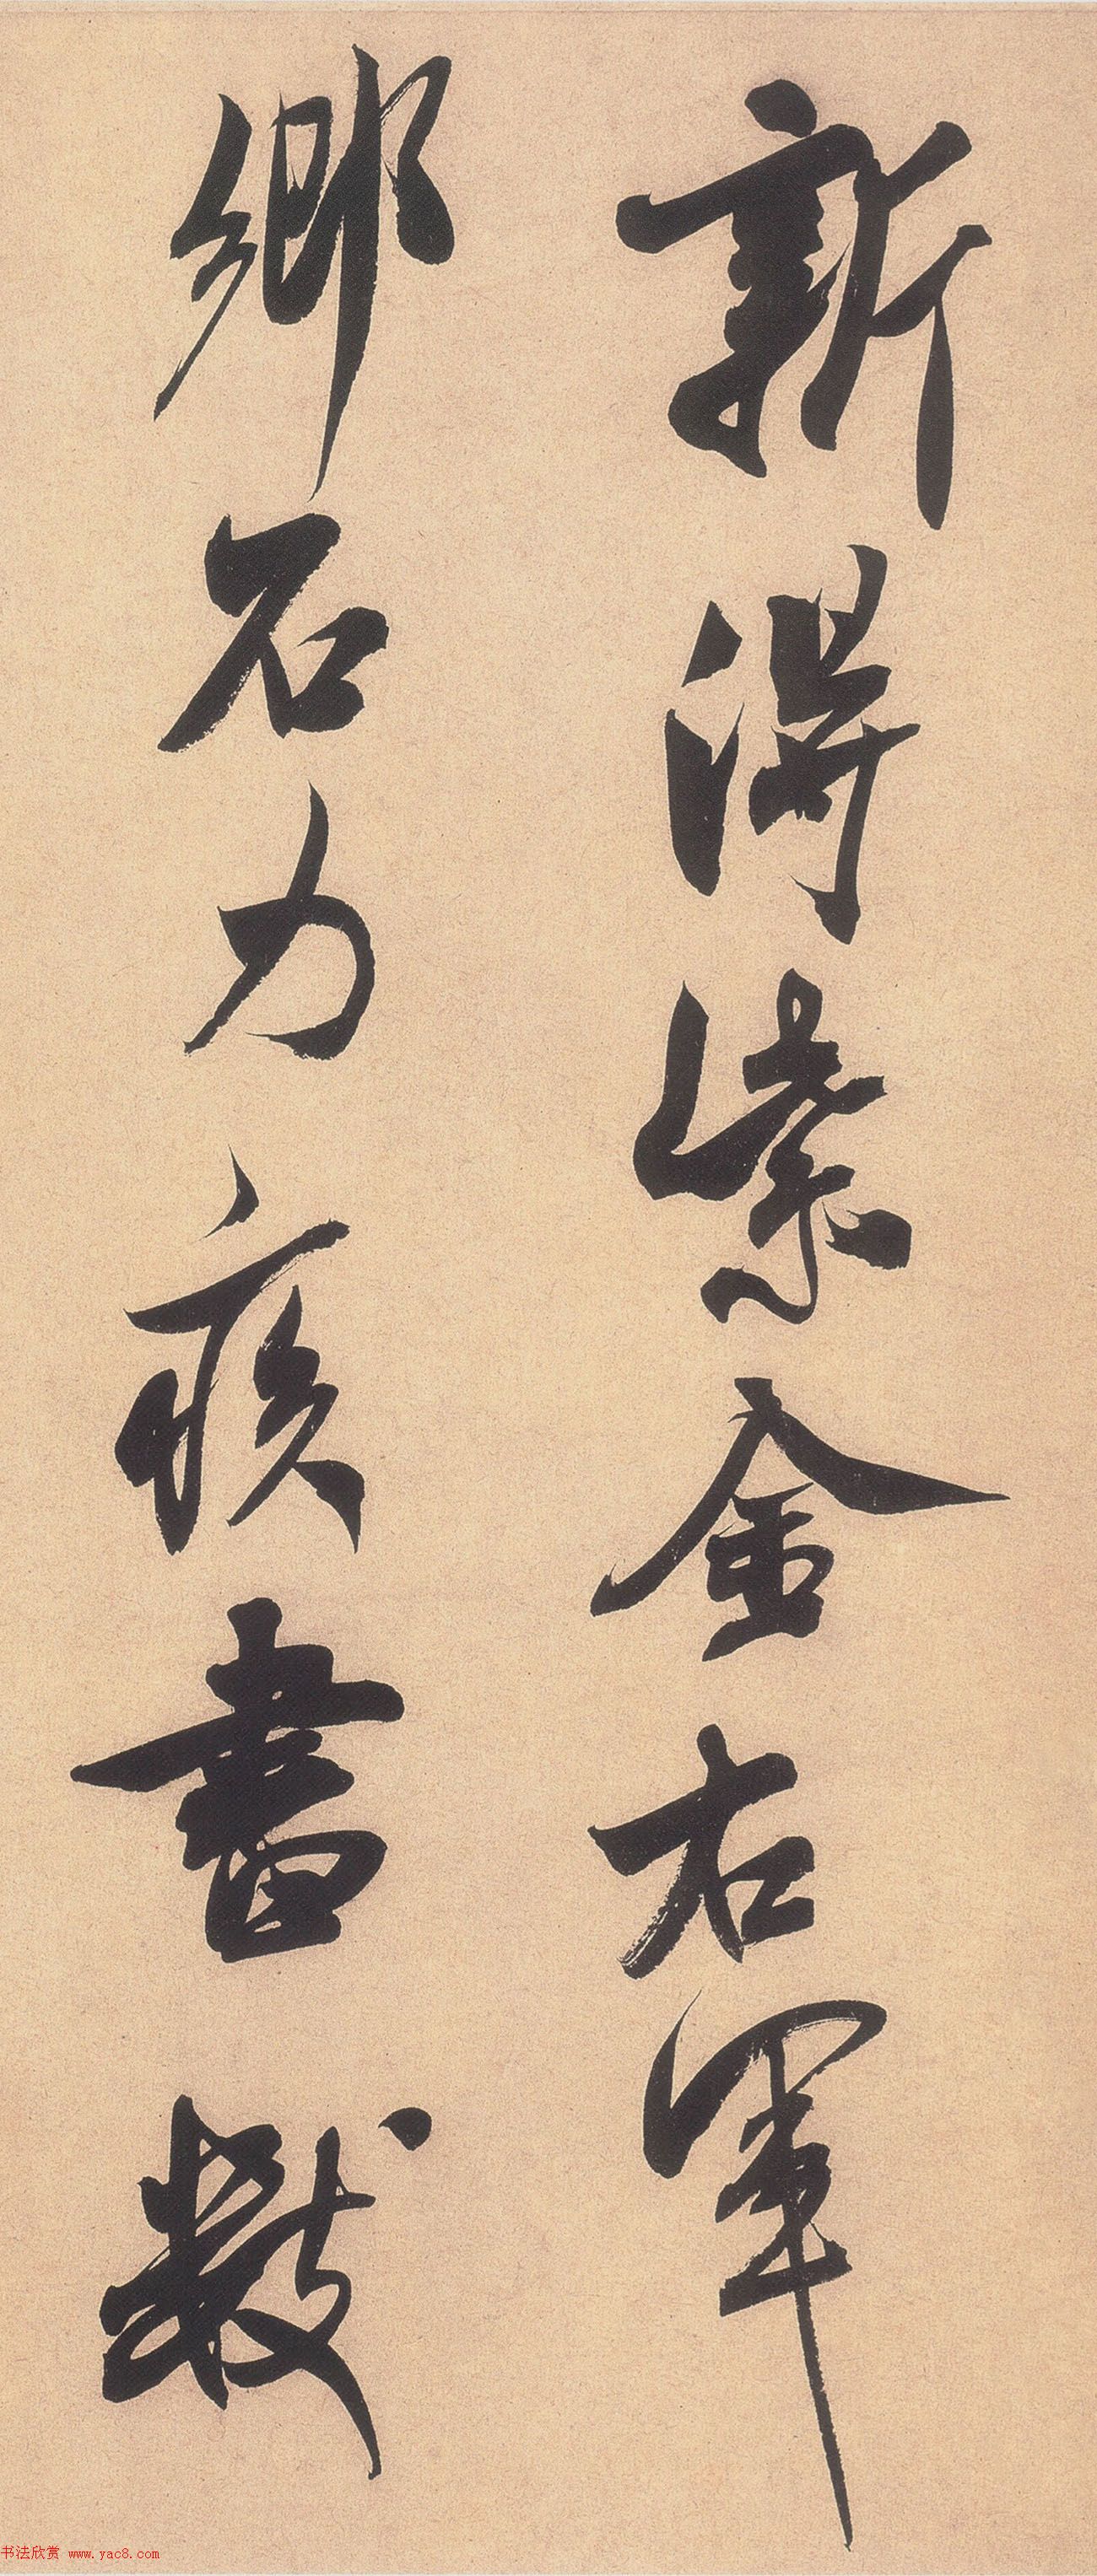 新得紫金右軍
鄉石力疾書數
书法欣赏 www.yac8.com